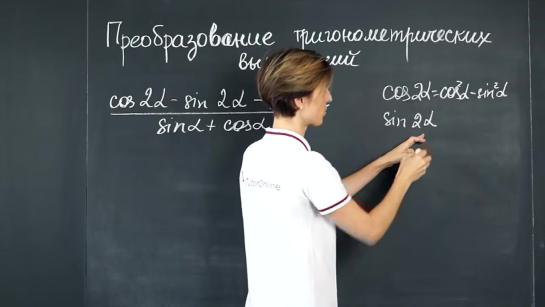 Преобразование тригонометрических
cos 2α - sin 2α -
sinα + cosα
cos2α = cos²α - sin²α
sin 2α
TutorOnline